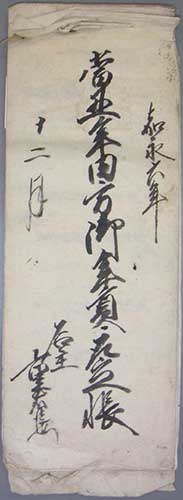 嘉永六年
當丑年田方御年貢取立帳
十二月
名主